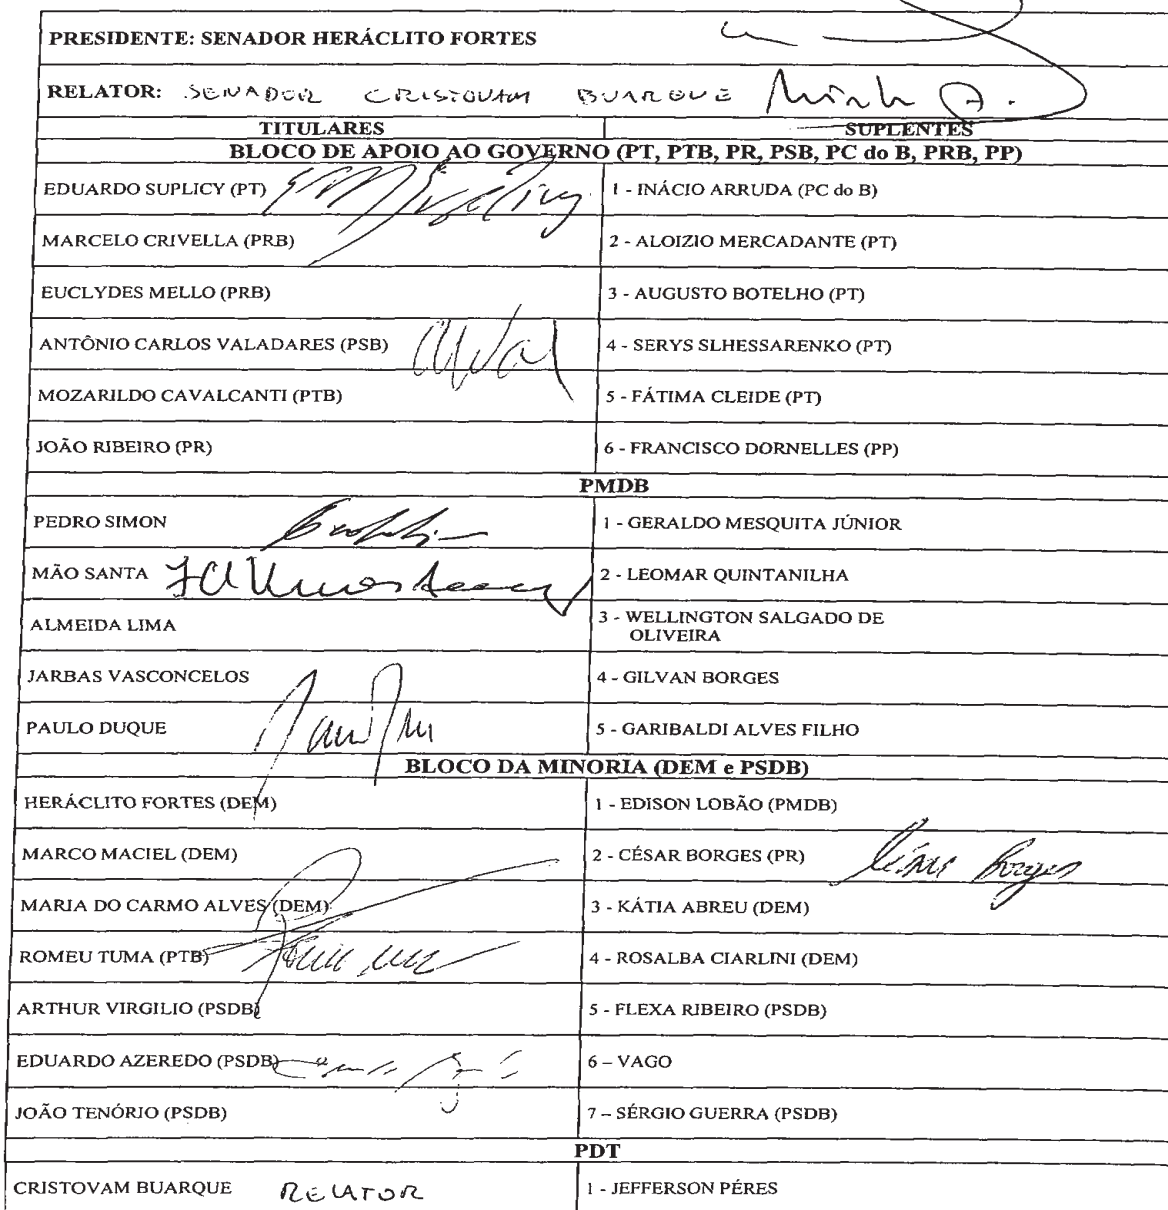 PRESIDENTE: SENADOR HERÁCLITO FORTES
RELATOR: SENADOR CRISTOVAM BUARQUE
TITULARES SUPLENTES
BLOCO DE APOIO AO GOVERNO (PT, PTB, PR, PSB, PC do B, PRB, PP)
EDUARDO SUPLICY (PT) 1 - INÁCIO ARRUDA (PC do B)
MARCELO CRIVELLA (PRB) 2 - ALOIZIO MERCADANTE (PT)
EUCLYDES MELLO (PRB) 3 - AUGUSTO BOTELHO (PT)
ANTÔNIO CARLOS VALADARES (PSB) 4 - SERYS SLHESSARENKO (PT)
MOZARILDO CAVALCANTI (PTB) 5 - FÁTIMA CLEIDE (PT)
JOÃO RIBEIRO (PR) 6 - FRANCISCO DORNELLES (PP)
PMDB
PEDRO SIMON 1 - GERALDO MESQUITA JÚNIOR
MÃO SANTA 2 - LEOMAR QUINTANILHA
ALMEIDA LIMA 3 - WELLINGTON SALGADO DE
OLIVEIRA
JARBAS VASCONCELOS 4 - GILVAN BORGES
PAULO DUQUE 5 - GARIBALDI ALVES FILHO
BLOCO DA MINORIA (DEM e PSDB)
HERÁCLITO FORTES (DEM) 1 - EDISON LOBÃO (PMDB)
MARCO MACIEL (DEM) 2 - CÉSAR BORGES (PR) César Borges
MARIA DO CARMO ALVES (DEM) 3 - KÁTIA ABREU (DEM)
ROMEU TUMA (PTB) 4 - ROSALBA CIARLINI (DEM)
ARTHUR VIRGILIO (PSDB) 5 - FLEXA RIBEIRO (PSDB)
EDUARDO AZEREDO (PSDB) 6 – VAGO
JOÃO TENÓRIO (PSDB) 7 – SÉRGIO GUERRA (PSDB)
PDT
CRISTOVAM BUARQUE RELATOR 1 - JEFFERSON PÉRES